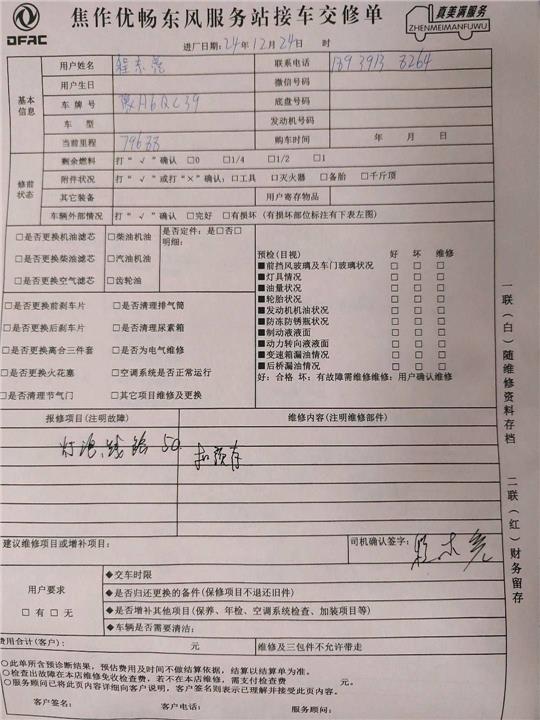 DFAC
焦作优畅东风服务站接车交修单
真美满服务
ZHENMEIMANFUWU
进厂日期：24年12月24日 时
基本信息
用户姓名 程东亮 联系电话
用户生日 微信号码
车牌号 豫A6QC39 底盘号码
车型 发动机号码
当前里程 购车时间 年 月 日
修前状态
剩余燃料 打“√”确认 □0 □1/4 □1/2 □1
附件状况 打“√”或打“×”确认：□工具 □灭火器 □备胎 □千斤顶
其它装备 用户寄存物品
车辆外部情况 打“√”确认 □完好 □有损坏（有损坏部位标注有下表左图）
□是否更换机油滤芯 □柴油机油 是否定件：是□否□
明细：
□是否更换柴油滤芯 □汽油机油
□是否更换空气滤芯 □齿轮油
□是否更换前刹车片 □是否清理排气筒
□是否更换后刹车片 □是否清理尿素箱
□是否更换离合三件套 □是否为电气维修
□是否更换火花塞 □空调系统是否正常运行
□是否清理节气门 □其它项目维修及更换
预检（目视） 好 坏 维修
■前挡风玻璃及车门玻璃状况 □ □ □
■灯具情况 □ □ □
■油量状况 □ □ □
■轮胎状况 □ □ □
■发动机机油状况 □ □ □
■防冻防锈瓶状况 □ □ □
■制动液液面 □ □ □
■动力转向液液面 □ □ □
■变速箱漏油情况 □ □ □
■后桥漏油情况 □ □ □
好：合格 坏：有故障需维修维修：用户确认维修
报修项目（注明故障） 维修内容（注明维修部件）
灯泡，线路 50
扣预存
建议维修项目或增补项目： 司机确认签字：程东亮
用户要求
□有 □无
◆交车时限
◆是否归还更换的备件（保修项目不退还旧件）
◆是否增补其他项目（保养、年检、空调系统检查、加装项目等）
◆车辆是否需要清洁：
费用合计（客户）： 元 维修及三包件不允许带走
○此单所含预诊断结果，预估费用及时间不做结算依据，结算以结算单为准。
○检查出故障在本店维修免收检查费，若不在本店维修，需支付检查费 元。
○服务顾问已将此页内容详细向客户说明，客户签名则表示已理解并接受此页内容。
客户签名： 客户电话： 服务顾问：
一联（白）随维修资料存档
二联（红）财务留存